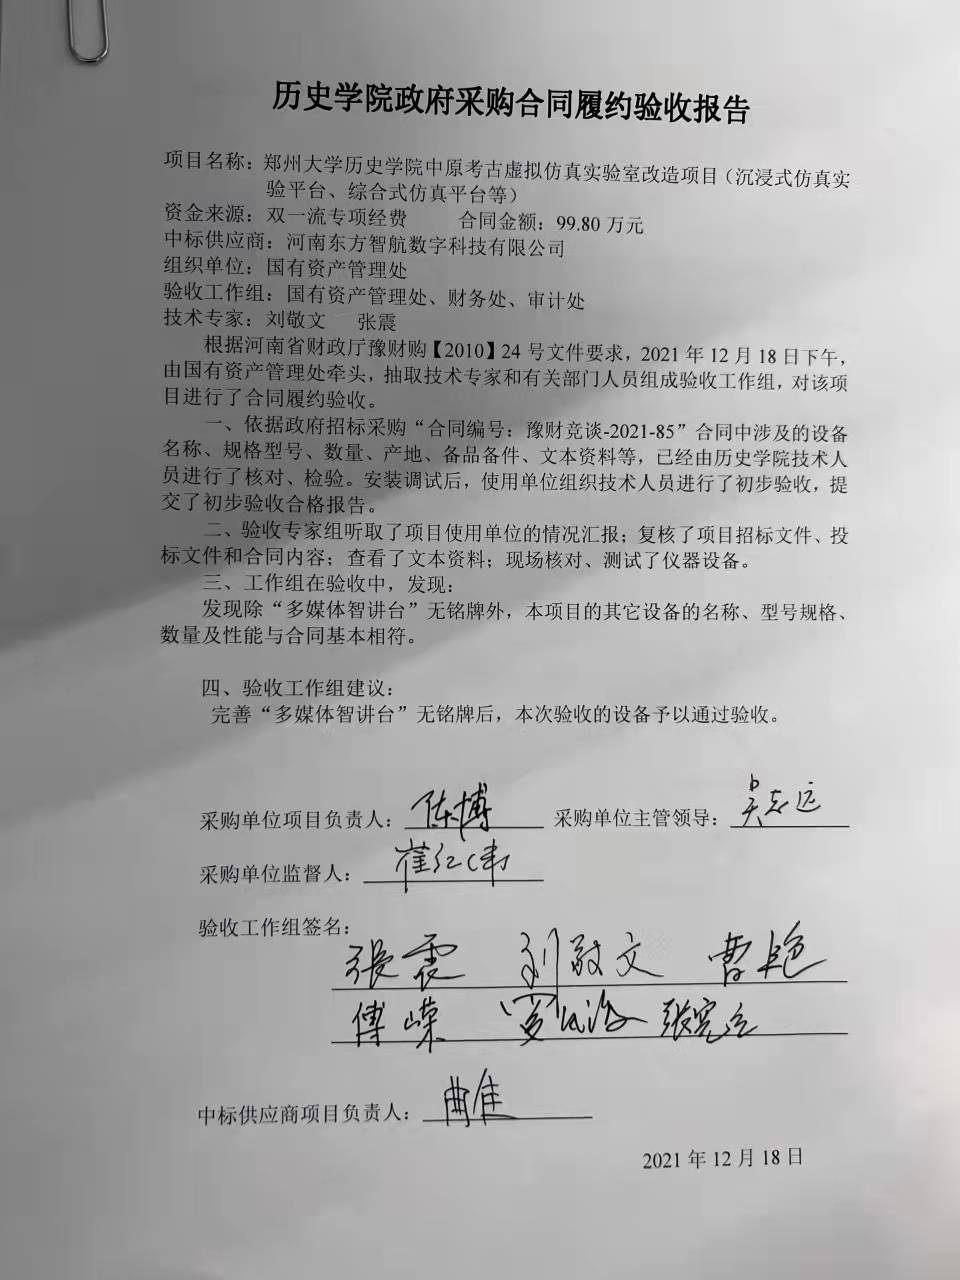 历史学院政府采购合同履约验收报告
项目名称：郑州大学历史学院中原考古虚拟仿真实验室改造项目（沉浸式仿真实
验平台、综合式仿真平台等）
资金来源：双一流专项经费 合同金额：99.80 万元
中标供应商：河南东方智航数字科技有限公司
组织单位：国有资产管理处
验收工作组：国有资产管理处、财务处、审计处
技术专家：刘敬文 张震
根据河南省财政厅豫财购【2010】24 号文件要求，2021 年 12 月 18 日下午，
由国有资产管理处牵头，抽取技术专家和有关部门人员组成验收工作组，对该项
目进行了合同履约验收。
一、依据政府招标采购“合同编号：豫财竞谈-2021-85”合同中涉及的设备
名称、规格型号、数量、产地、备品备件、文本资料等，已经由历史学院技术人
员进行了核对、检验。安装调试后，使用单位组织技术人员进行了初步验收，提
交了初步验收合格报告。
二、验收专家组听取了项目使用单位的情况汇报；复核了项目招标文件、投
标文件和合同内容；查看了文本资料；现场核对、测试了仪器设备。
三、工作组在验收中，发现：
发现除“多媒体智讲台”无铭牌外，本项目的其它设备的名称、型号规格、
数量及性能与合同基本相符。
四、验收工作组建议：
完善“多媒体智讲台”无铭牌后，本次验收的设备予以通过验收。
采购单位项目负责人：陈博 采购单位主管领导：吴志远
采购单位监督人：崔红伟
验收工作组签名：
張震 刘敬文 曹艳
傅嵘
中标供应商项目负责人：曲佳
2021 年 12 月 18 日